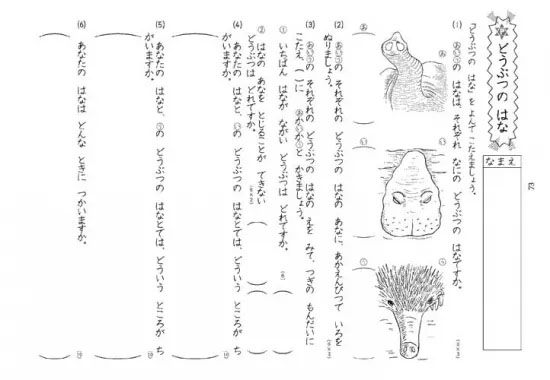 73
どうぶつの はな
なまえ
「どうぶつの はな」を よんで こたえましょう。
(1) あいうの はなは、それぞれ なにの どうぶつの はなですか。
あ
い
う
(2) あいうの それぞれの どうぶつの はなの あなに、あかえんぴつで いろを
ぬりましょう。
(3) あいうの それぞれの どうぶつの はなの えを みて、つぎの もんだいに
こたえ、( )に あかいかうと かきましょう。
① いちばん はなが ながい どうぶつは どれですか。
② はなの あなを とじることが できない
どうぶつは どれですか。
(4) あなたの はなと、いの どうぶつの はなとでは、どういう ところが ち
がいますか。
(5) あなたの はなと、うの どうぶつの はなとでは、どういう ところが ち
がいますか。
(6) あなたの はなは どんな ときに つかいますか。